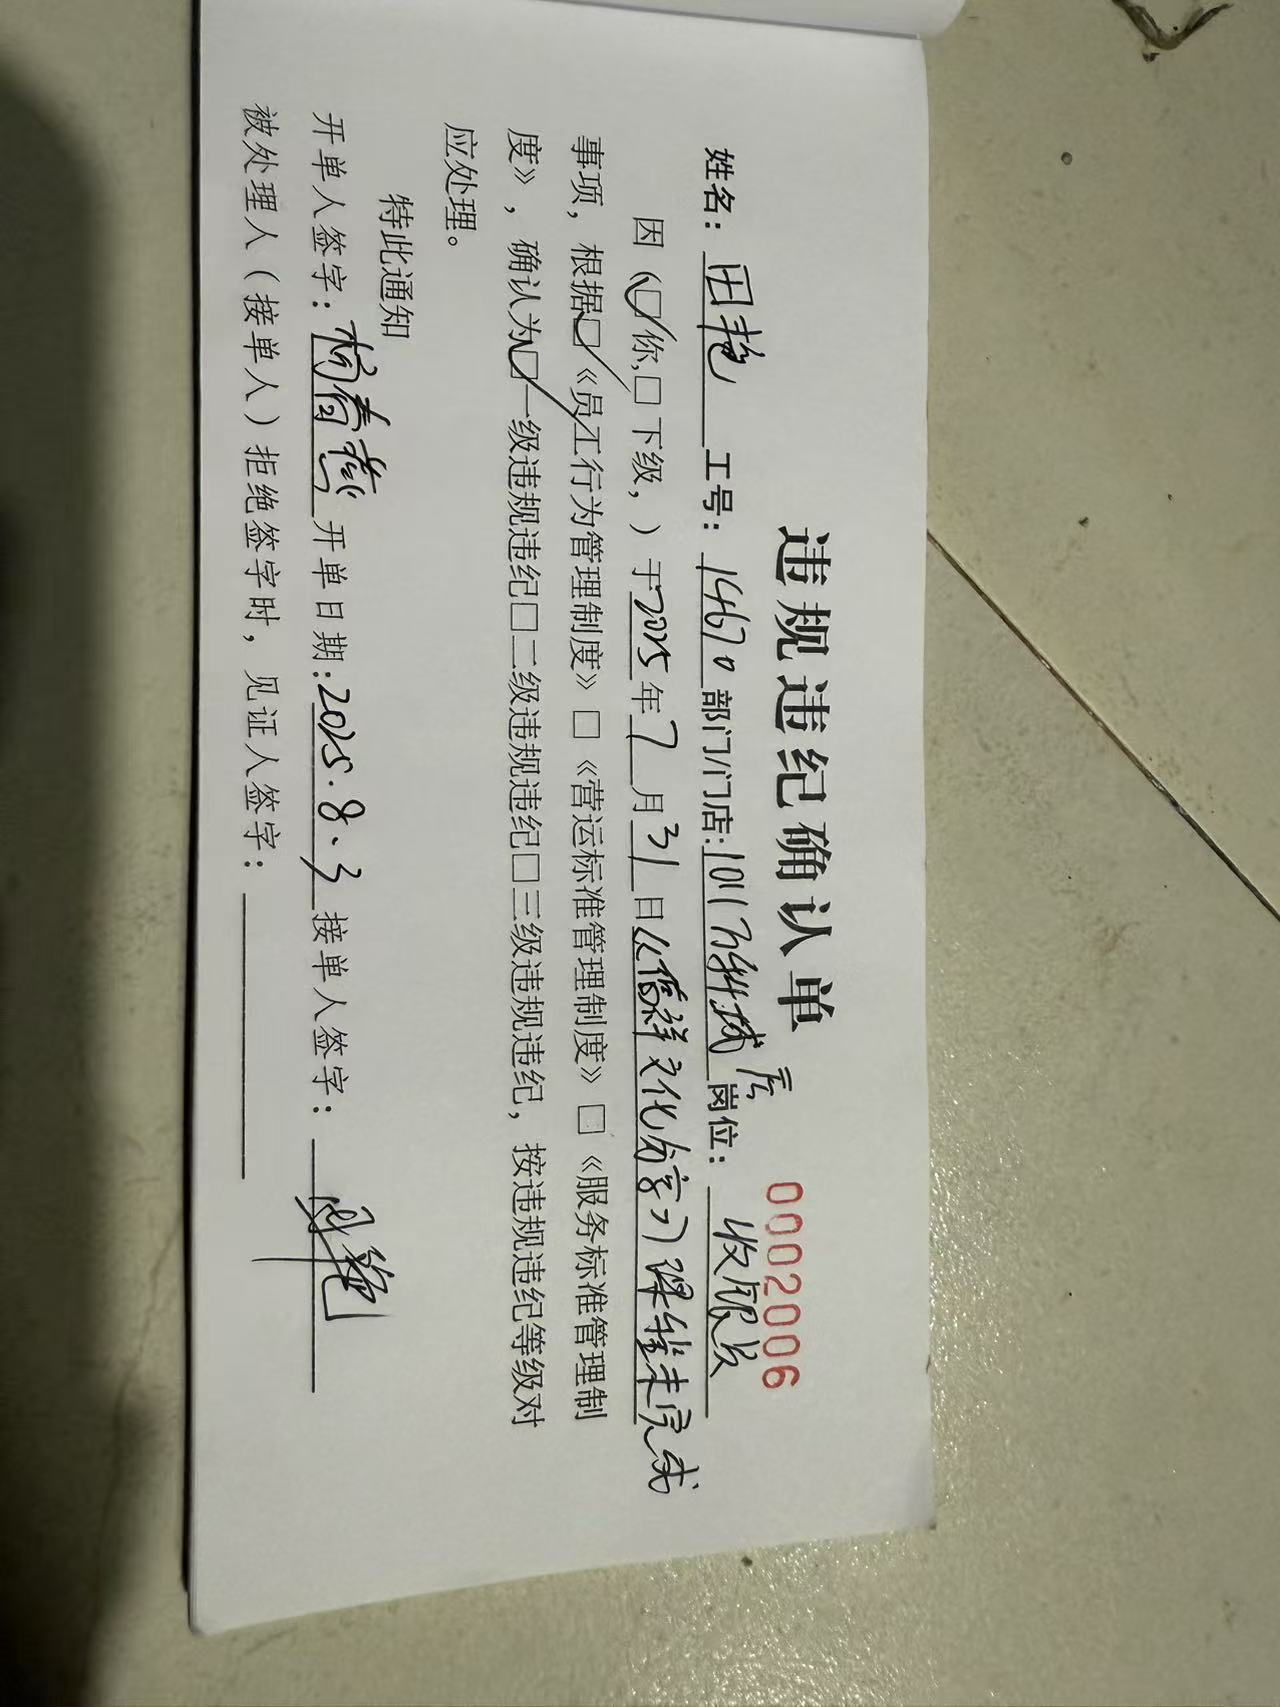 违规违纪确认单
0002006
姓名：田艳 工号：14670 部门/门店：1011万科城店 岗位：收银员
因（☑你，□下级，）于2025年7月31日文化分享习课程未完成
事项，根据☑《员工行为管理制度》□《营运标准管理制度》□《服务标准管理制
度》，确认为☑一级违规违纪□二级违规违纪□三级违规违纪，按违规违纪等级对
应处理。
特此通知
开单人签字：杨春燕 开单日期：2025.8.3 接单人签字：田艳
被处理人（接单人）拒绝签字时，见证人签字：